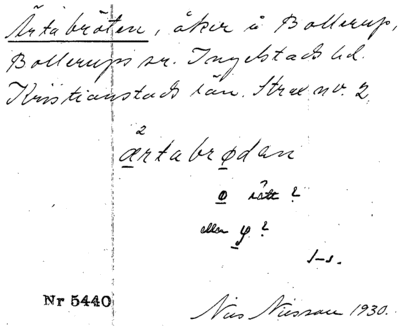 Ärtabröten, åker i Bollerup,
Bollerups sn. Ingelstads hd.
Kristianstads län. Strax nv. 2
2
ærtabrødan
ø rätt?
eller y?
Nr 5440
Nils Nilsson 1930.